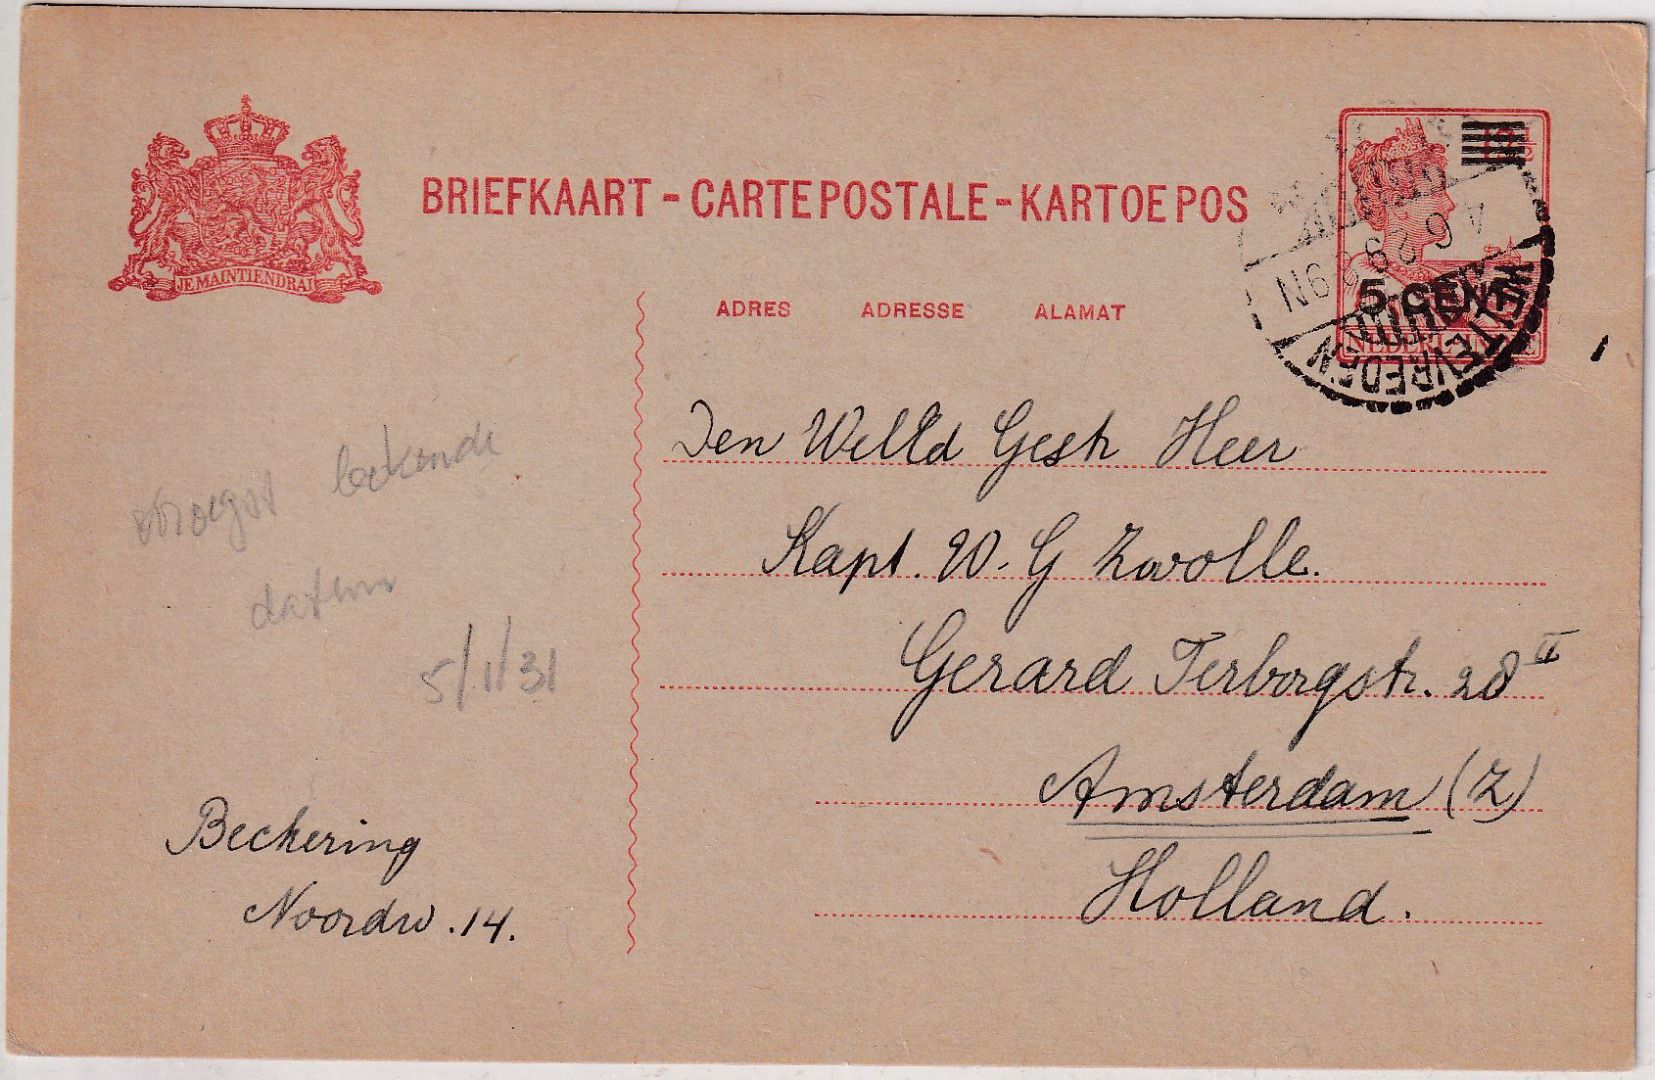 BRIEFKAART - CARTE POSTALE - KARTOE POS
JE MAINTIENDRAI
ADRES ADRESSE ALAMAT
5 CENT
WELTEVREDEN
4 6 29 9N
Den WelEd Gestr Heer
Kapt. W. G Zwolle.
Gerard Terborgstr. 28 II
Amsterdam (Z)
Holland.
vroegst bekende
datum
5/1/31
Beckering
Noordw. 14.